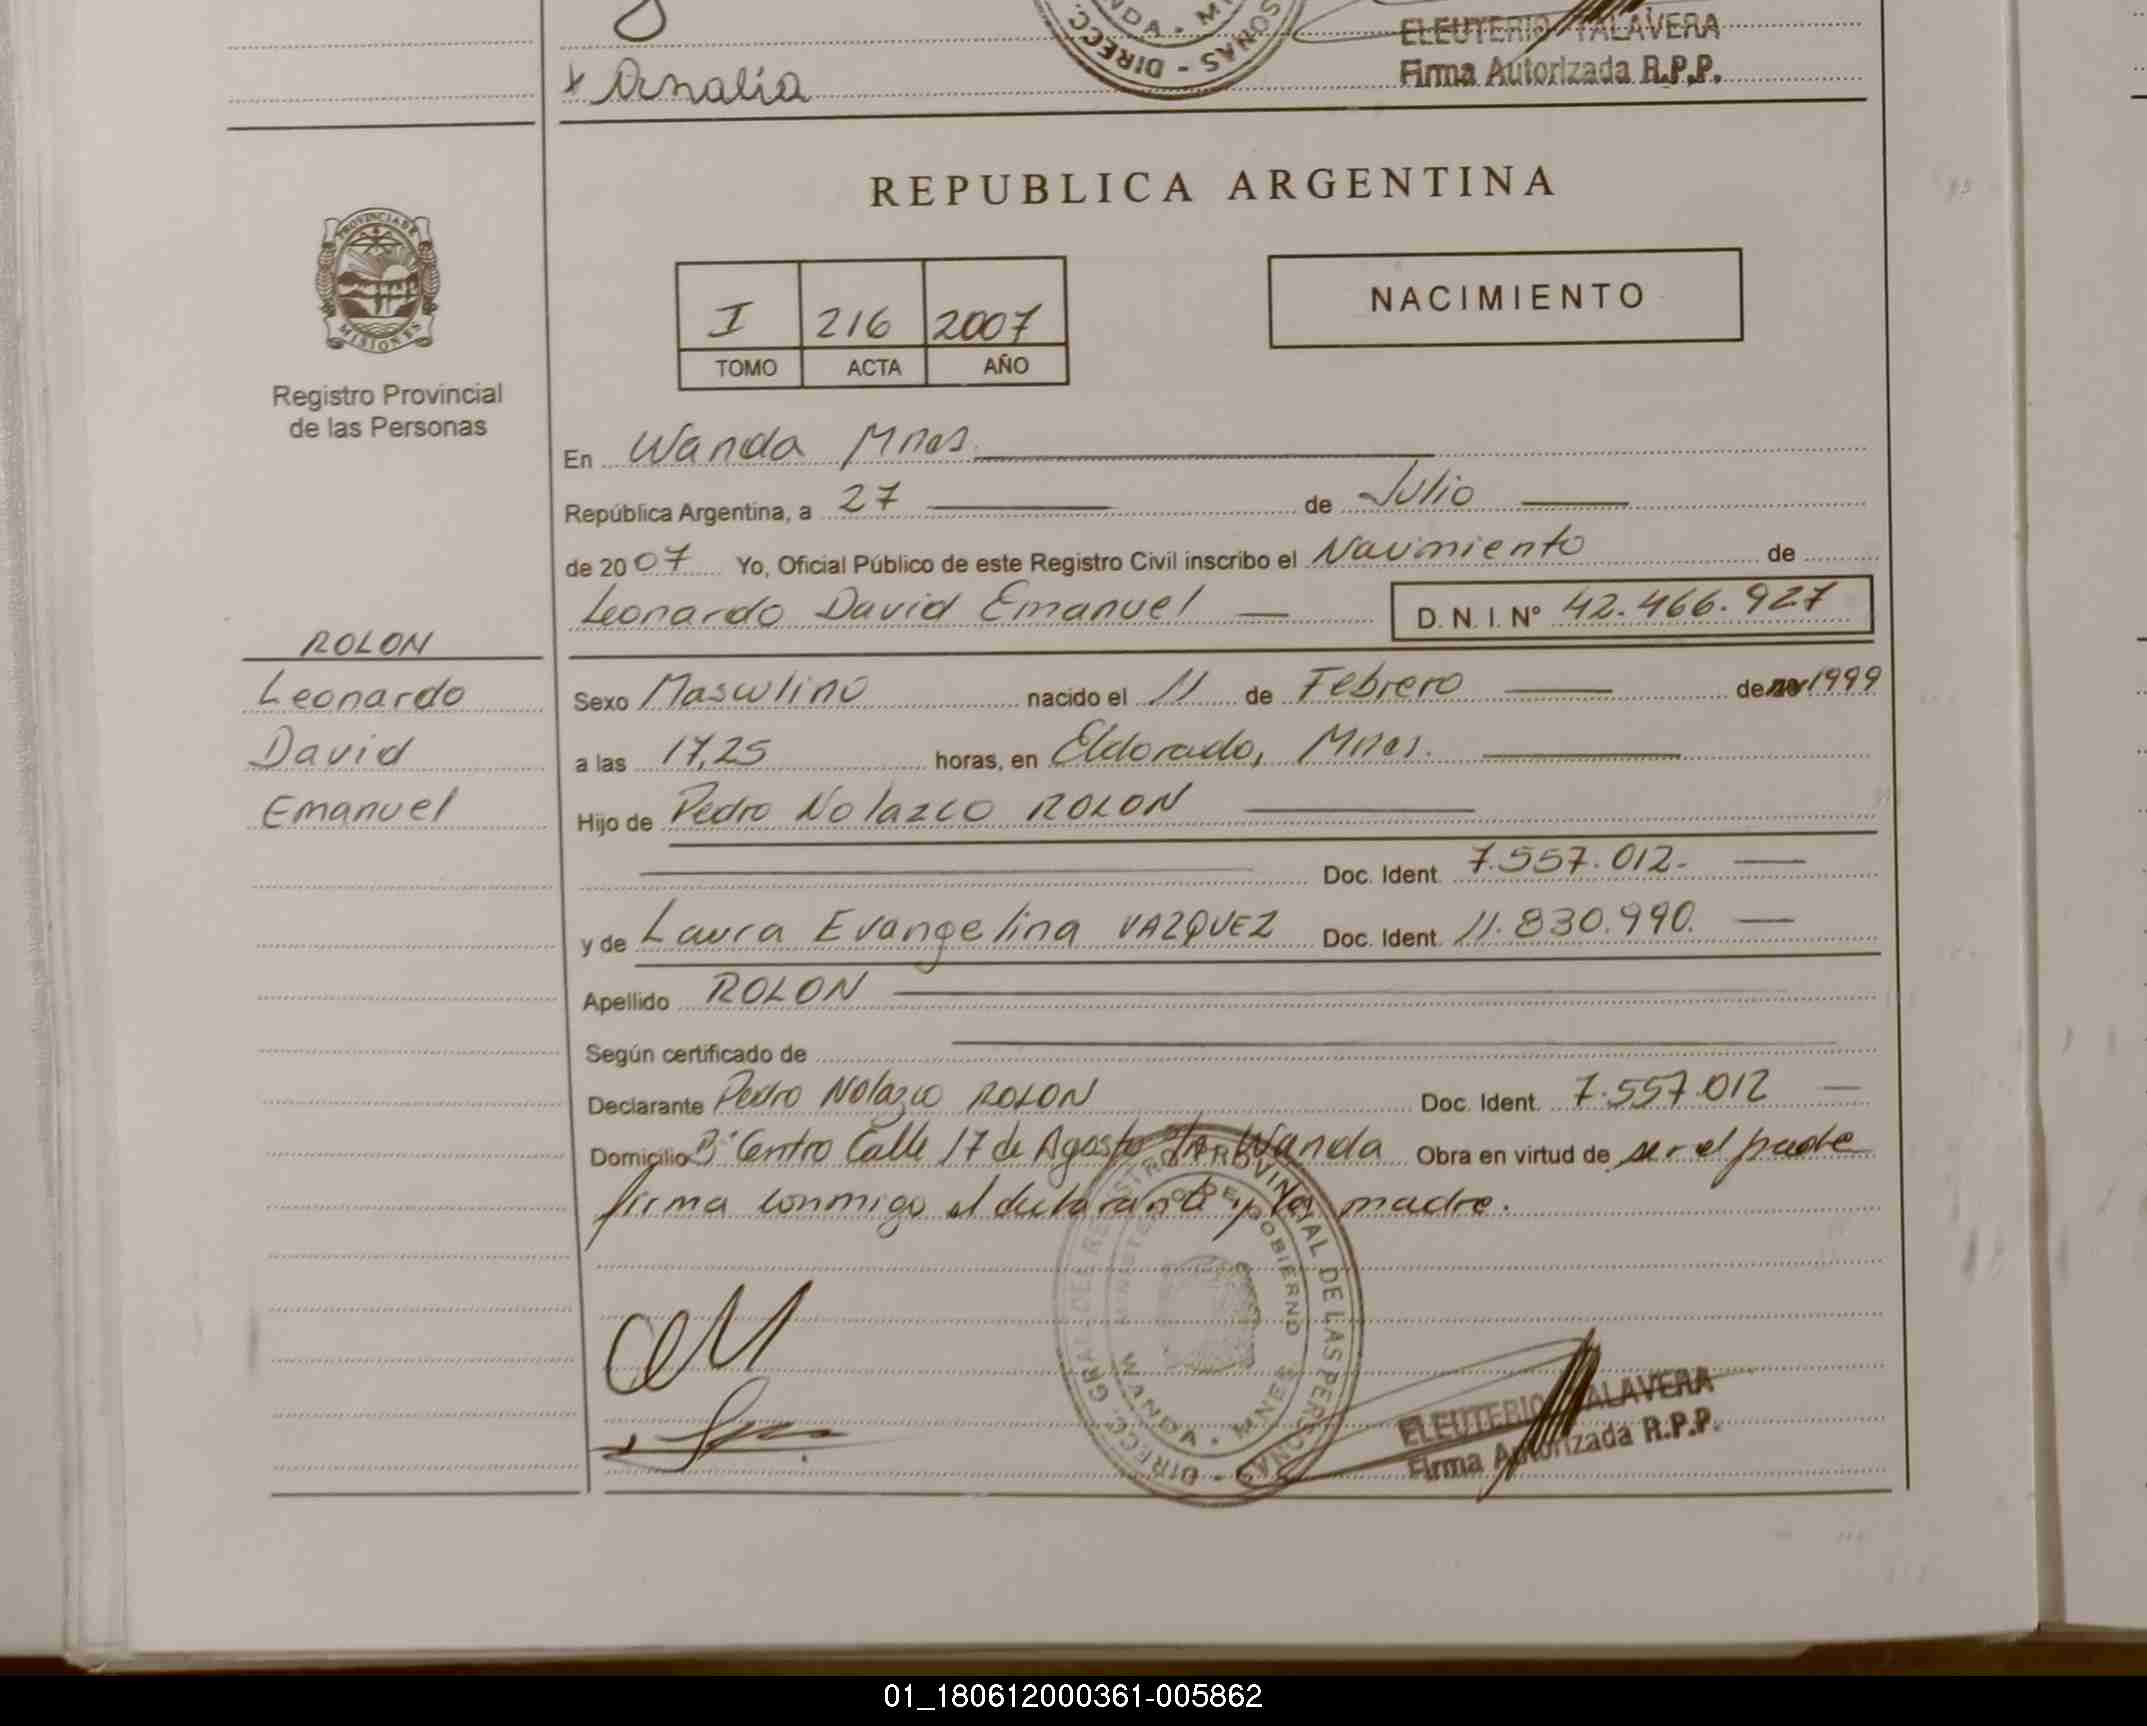 ELEUTERIO TALAVERA
x Analia
Firma Autorizada R.P.P.
REPUBLICA ARGENTINA
PROVINCIA DE
MISIONES
Registro Provincial
de las Personas
I 216 2007
TOMO ACTA AÑO
NACIMIENTO
En Wanda Mnes.
República Argentina, a 27 de Julio
de 2007 Yo, Oficial Público de este Registro Civil inscribo el Nacimiento de
Leonardo David Emanuel D. N. I. Nº 42.466.927
ROLON
Leonardo
David
Emanuel
Sexo Masculino nacido el 11 de Febrero de 1999
a las 17,25 horas, en Eldorado, Mnes.
Hijo de Pedro Nolazco ROLON
Doc. Ident. 7.557.012.
y de Laura Evangelina VAZQUEZ Doc. Ident. 11.830.990.
Apellido ROLON
Según certificado de
Declarante Pedro Nolazco ROLON Doc. Ident. 7.557.012
Domicilio Bº Centro Calle 17 de Agosto Wanda Obra en virtud de ser el padre
firma conmigo el declarante y la madre.
DIRECC. GRAL. DEL REGISTRO PROVINCIAL DE LAS PERSONAS
MINISTERIO DE GOBIERNO
WANDA - MNES
ELEUTERIO TALAVERA
Firma Autorizada R.P.P.
01_180612000361-005862